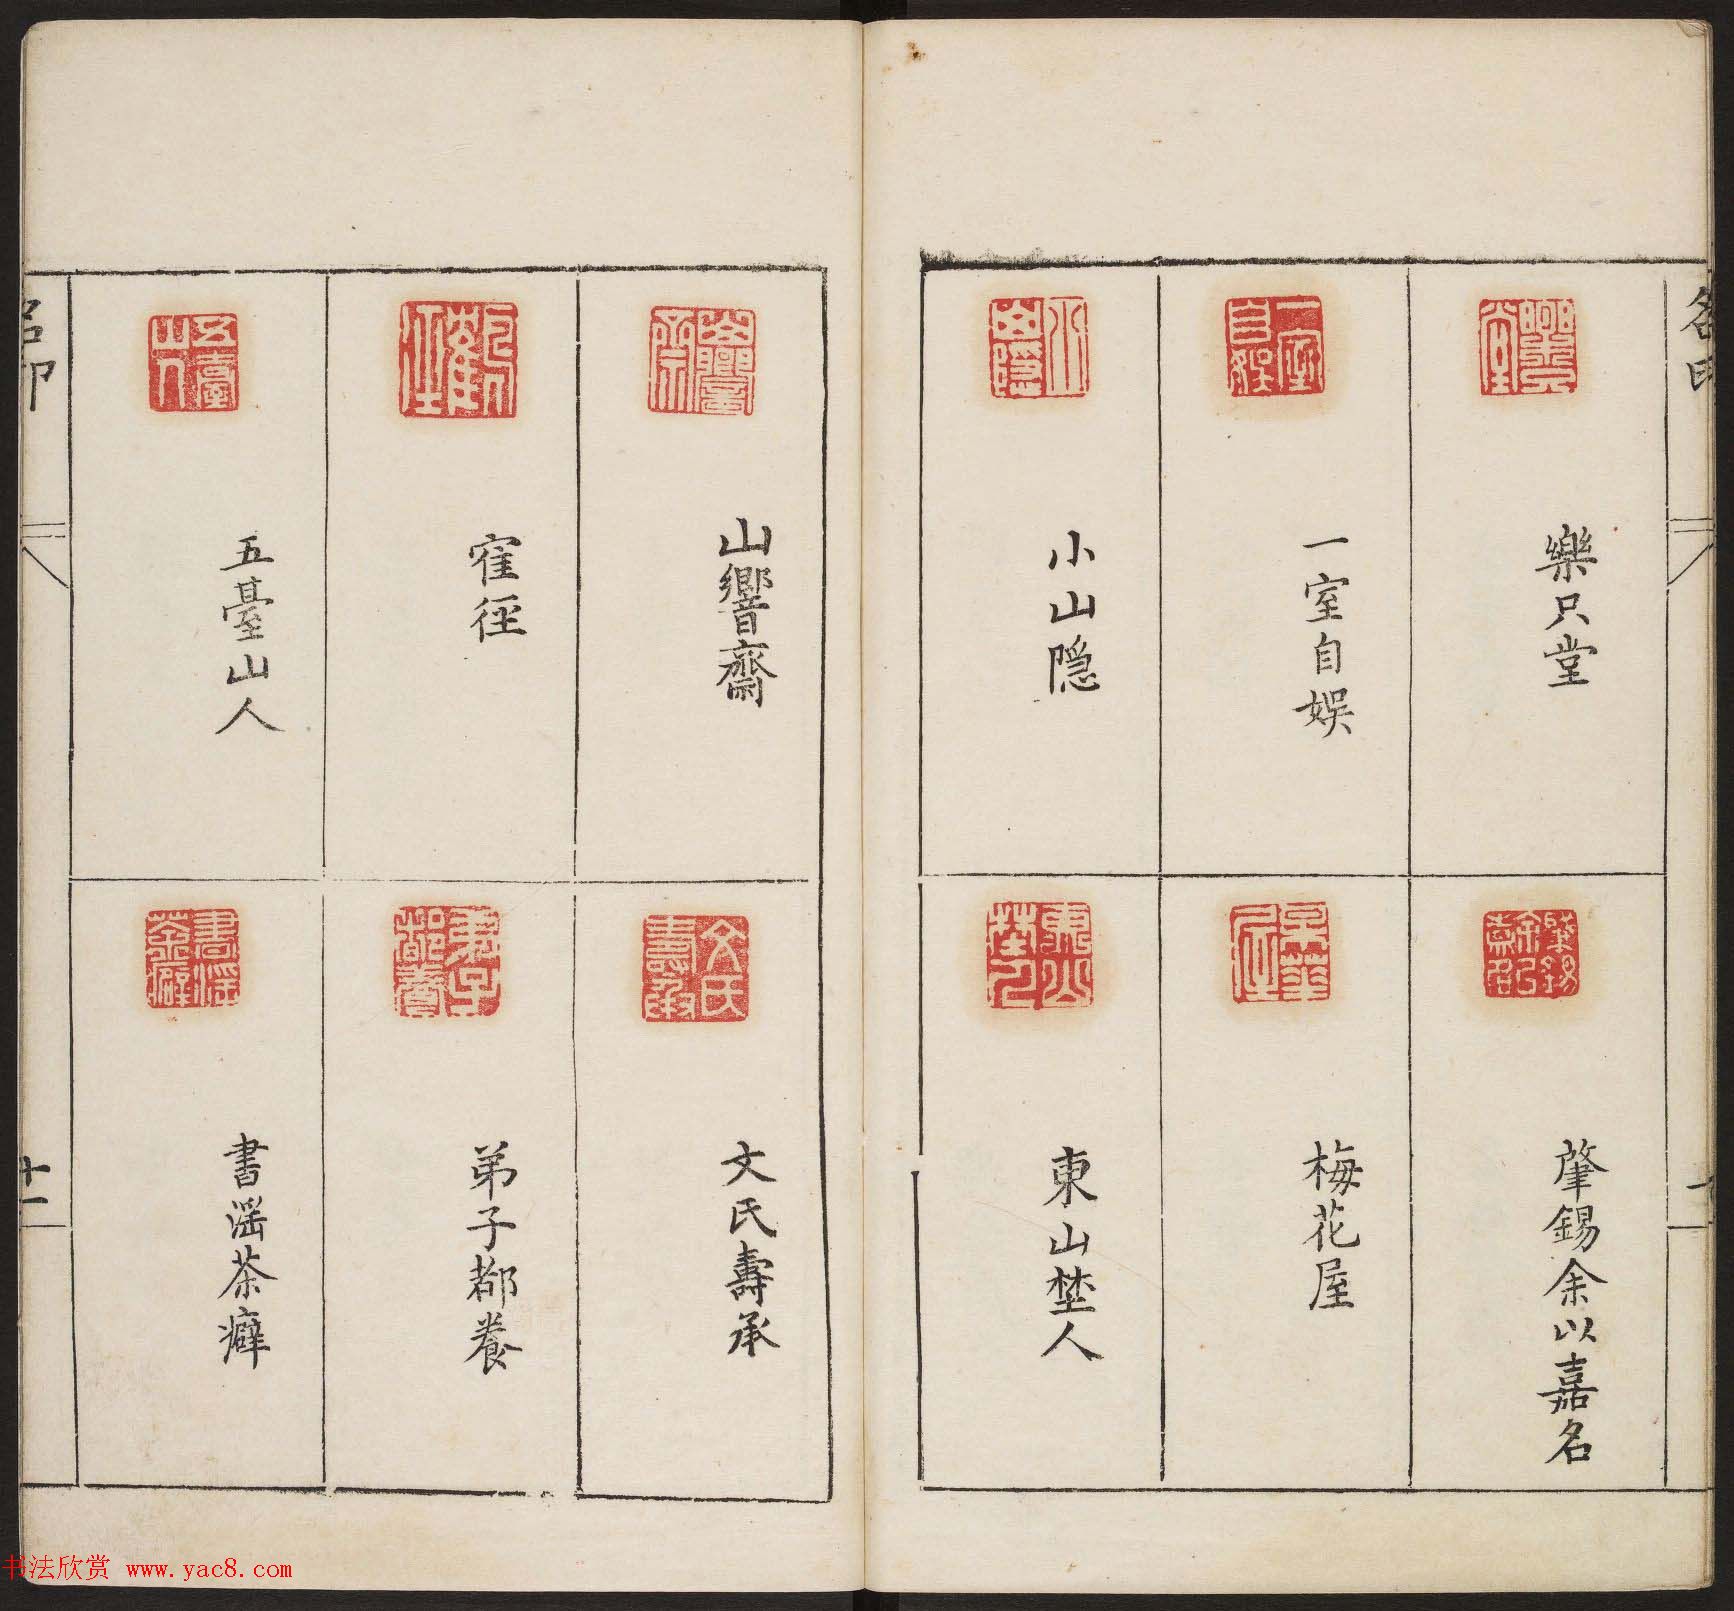 樂只堂
一室自娛
小山隱
肇錫余以嘉名
梅花屋
東山埜人
山響齋
寉徑
五臺山人
文氏壽承
弟子都養
書滛茶癖
十一
书法欣赏 www.yac8.com